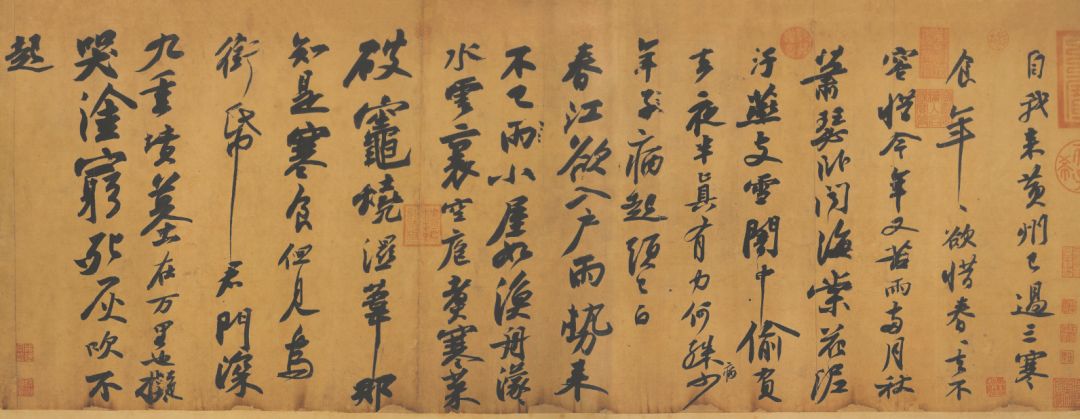 自我来黄州已過三寒
食年〻欲惜春〻去不
容惜今年又苦雨兩月秋
蕭瑟卧聞海棠花泥
汙燕支雪闇中偷負
去夜半真有力何殊病少
年子病起頭已白
春江欲入户雨勢来
不已雨小屋如漁舟濛〻
水雲裏空庖煑寒菜
破竈燒濕葦那
知是寒食但見烏
銜帋君門深
九重墳墓在万里也擬
哭塗窮死灰吹不
起